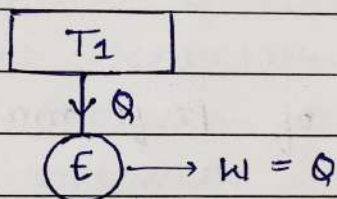 T1
Q
E → W = Q